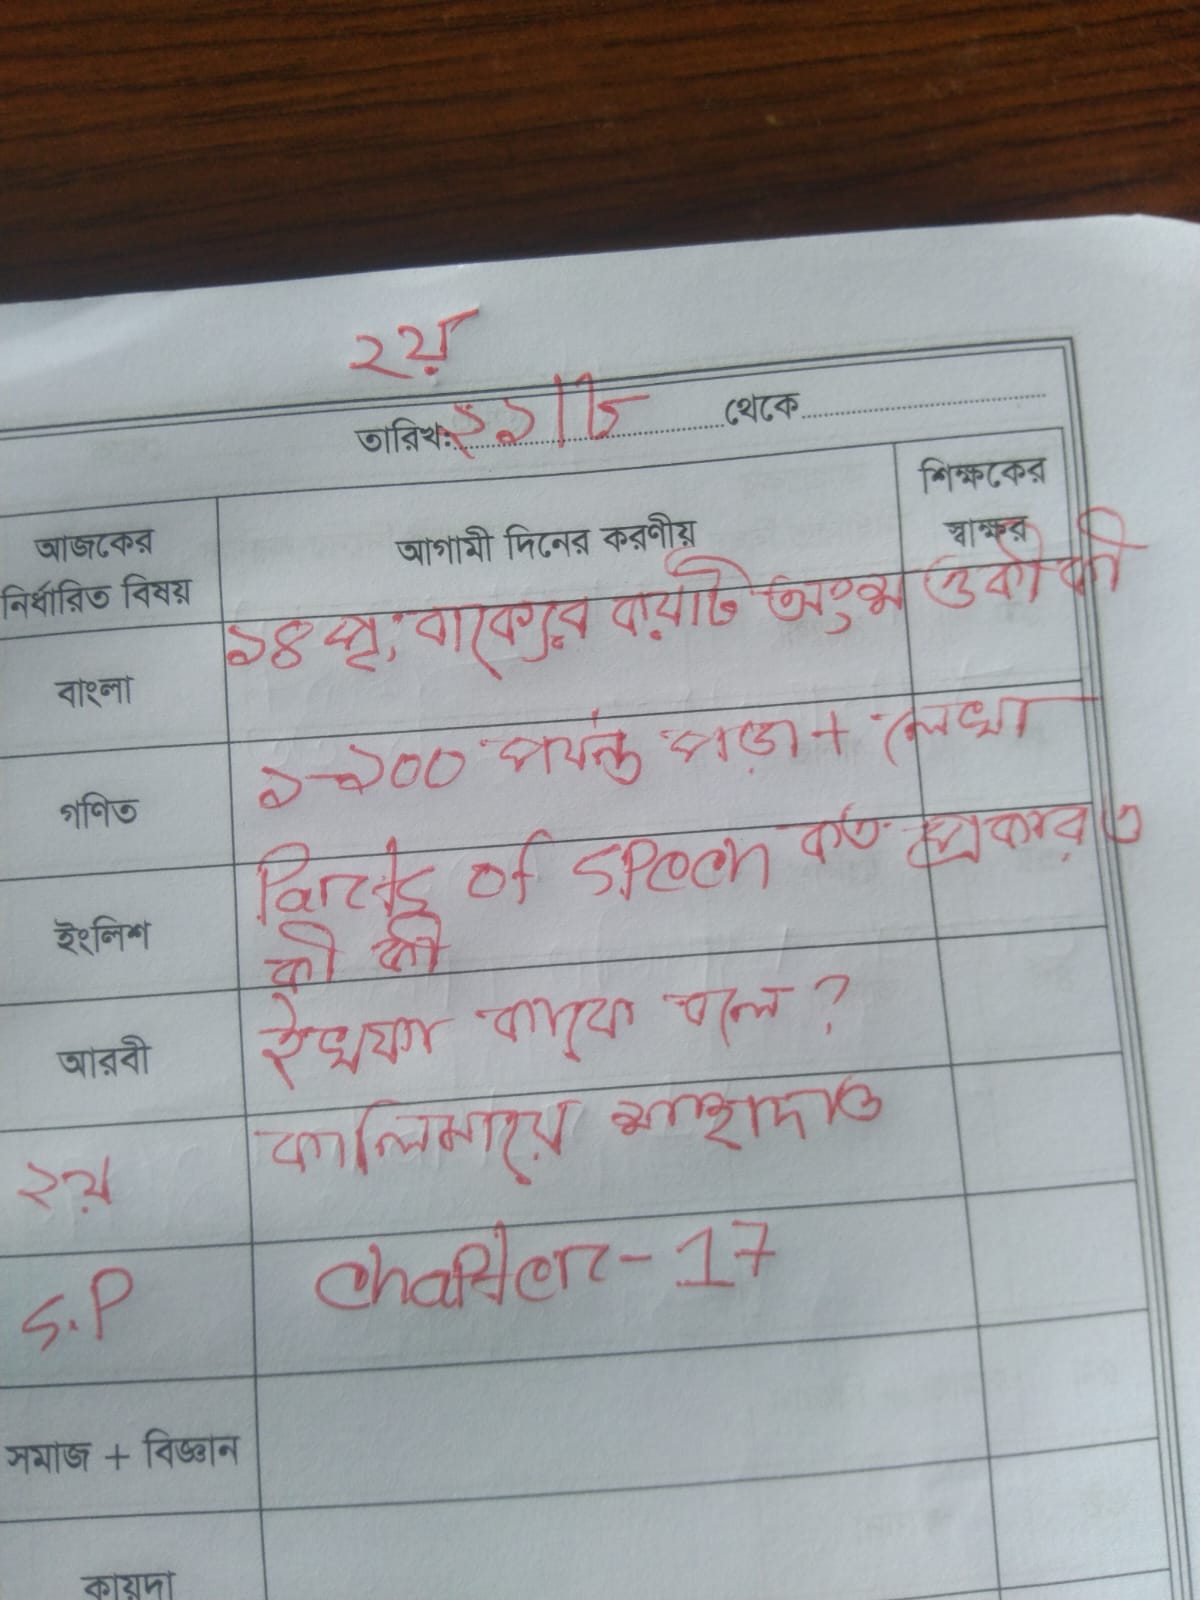 ২য়
তারিখ: ২১/৮ থেকে
আজকের নির্ধারিত বিষয় আগামী দিনের করণীয় শিক্ষকের স্বাক্ষর
বাংলা ১৪পৃ, বাক্যের কয়টি অংশ ও কী কী
গণিত ১-১০০ পর্যন্ত পড়া + লেখা
ইংলিশ Parts of speech কত প্রকার ও
কী কী
আরবী ইখফা কাকে বলে ?
২য় কালিমায়ে শাহাদাত
S.P Chapter - 17
সমাজ + বিজ্ঞান
কায়দা